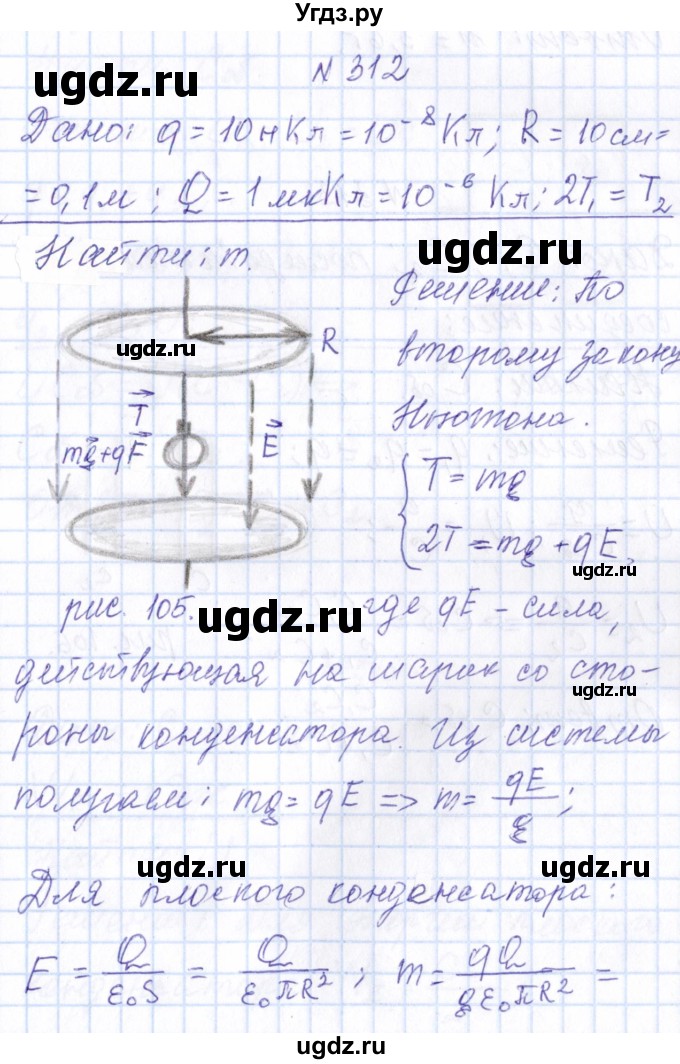 Угдз.ру
ugdz.ru
N 312
Дано: q = 10 нКл = 10⁻⁸ Кл; R = 10 см =
= 0,1 м; Q = 1 мкКл = 10⁻⁶ Кл; 2T₁ = T₂
Найти: m.
ugdz.ru
Решение: По
второму закону
Ньютона.
ugdz.ru
R
T
mg+qE
E
{ T = mg
2T = mg + qE,
ugdz.ru
рис. 105.
ugdz.ru
где qE – сила,
действующая на шарик со сто-
ugdz.ru
роны конденсатора. Из системы
получаем: mg = qE => m = qE/g;
ugdz.ru
ugdz.ru
Для плоского конденсатора:
E = Q/ε₀S = Q/ε₀πR²; m = qQ/gε₀πR² =
ugdz.ru
ugdz.ru